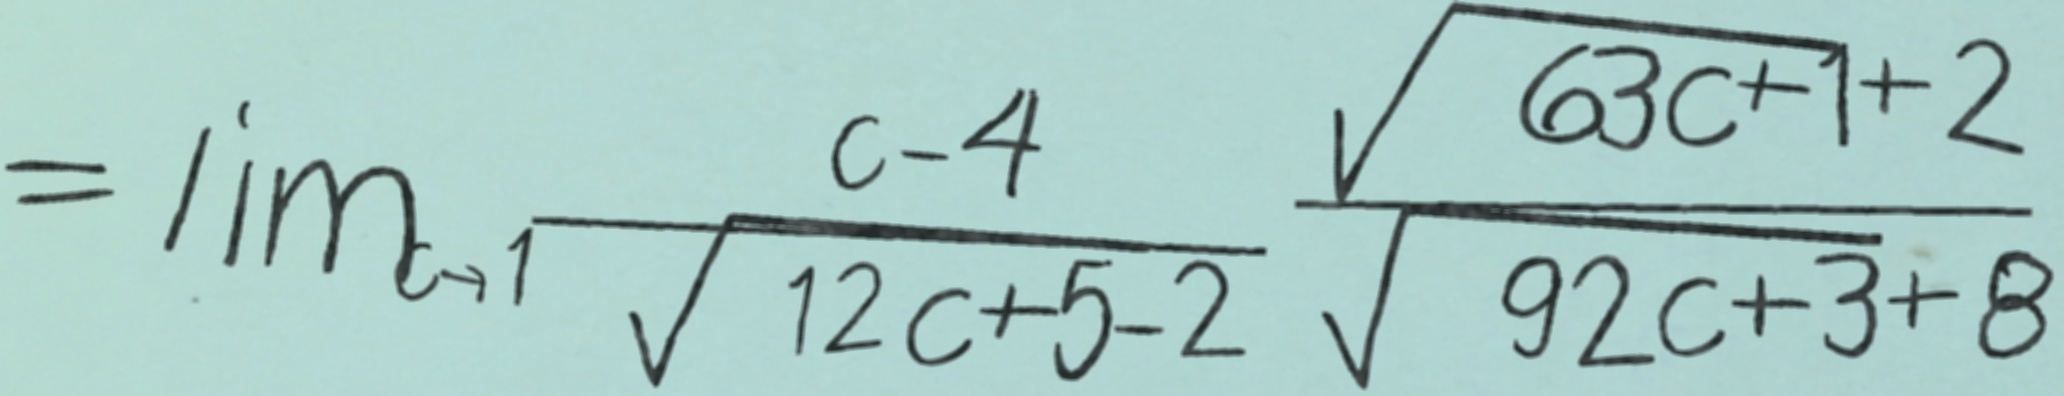 = lim_{c→1} \frac{c-4}{\sqrt{12c+5-2}} \frac{\sqrt{63c+1}+2}{\sqrt{92c+3}+8}